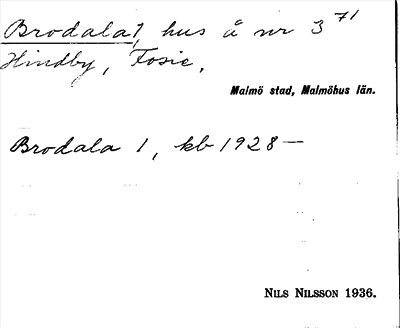 Brodala 1, hus å nr 3 71
Hindby, Fosie.
Malmö stad, Malmöhus län.
Brodala 1, kb 1928 —
Nils Nilsson 1936.